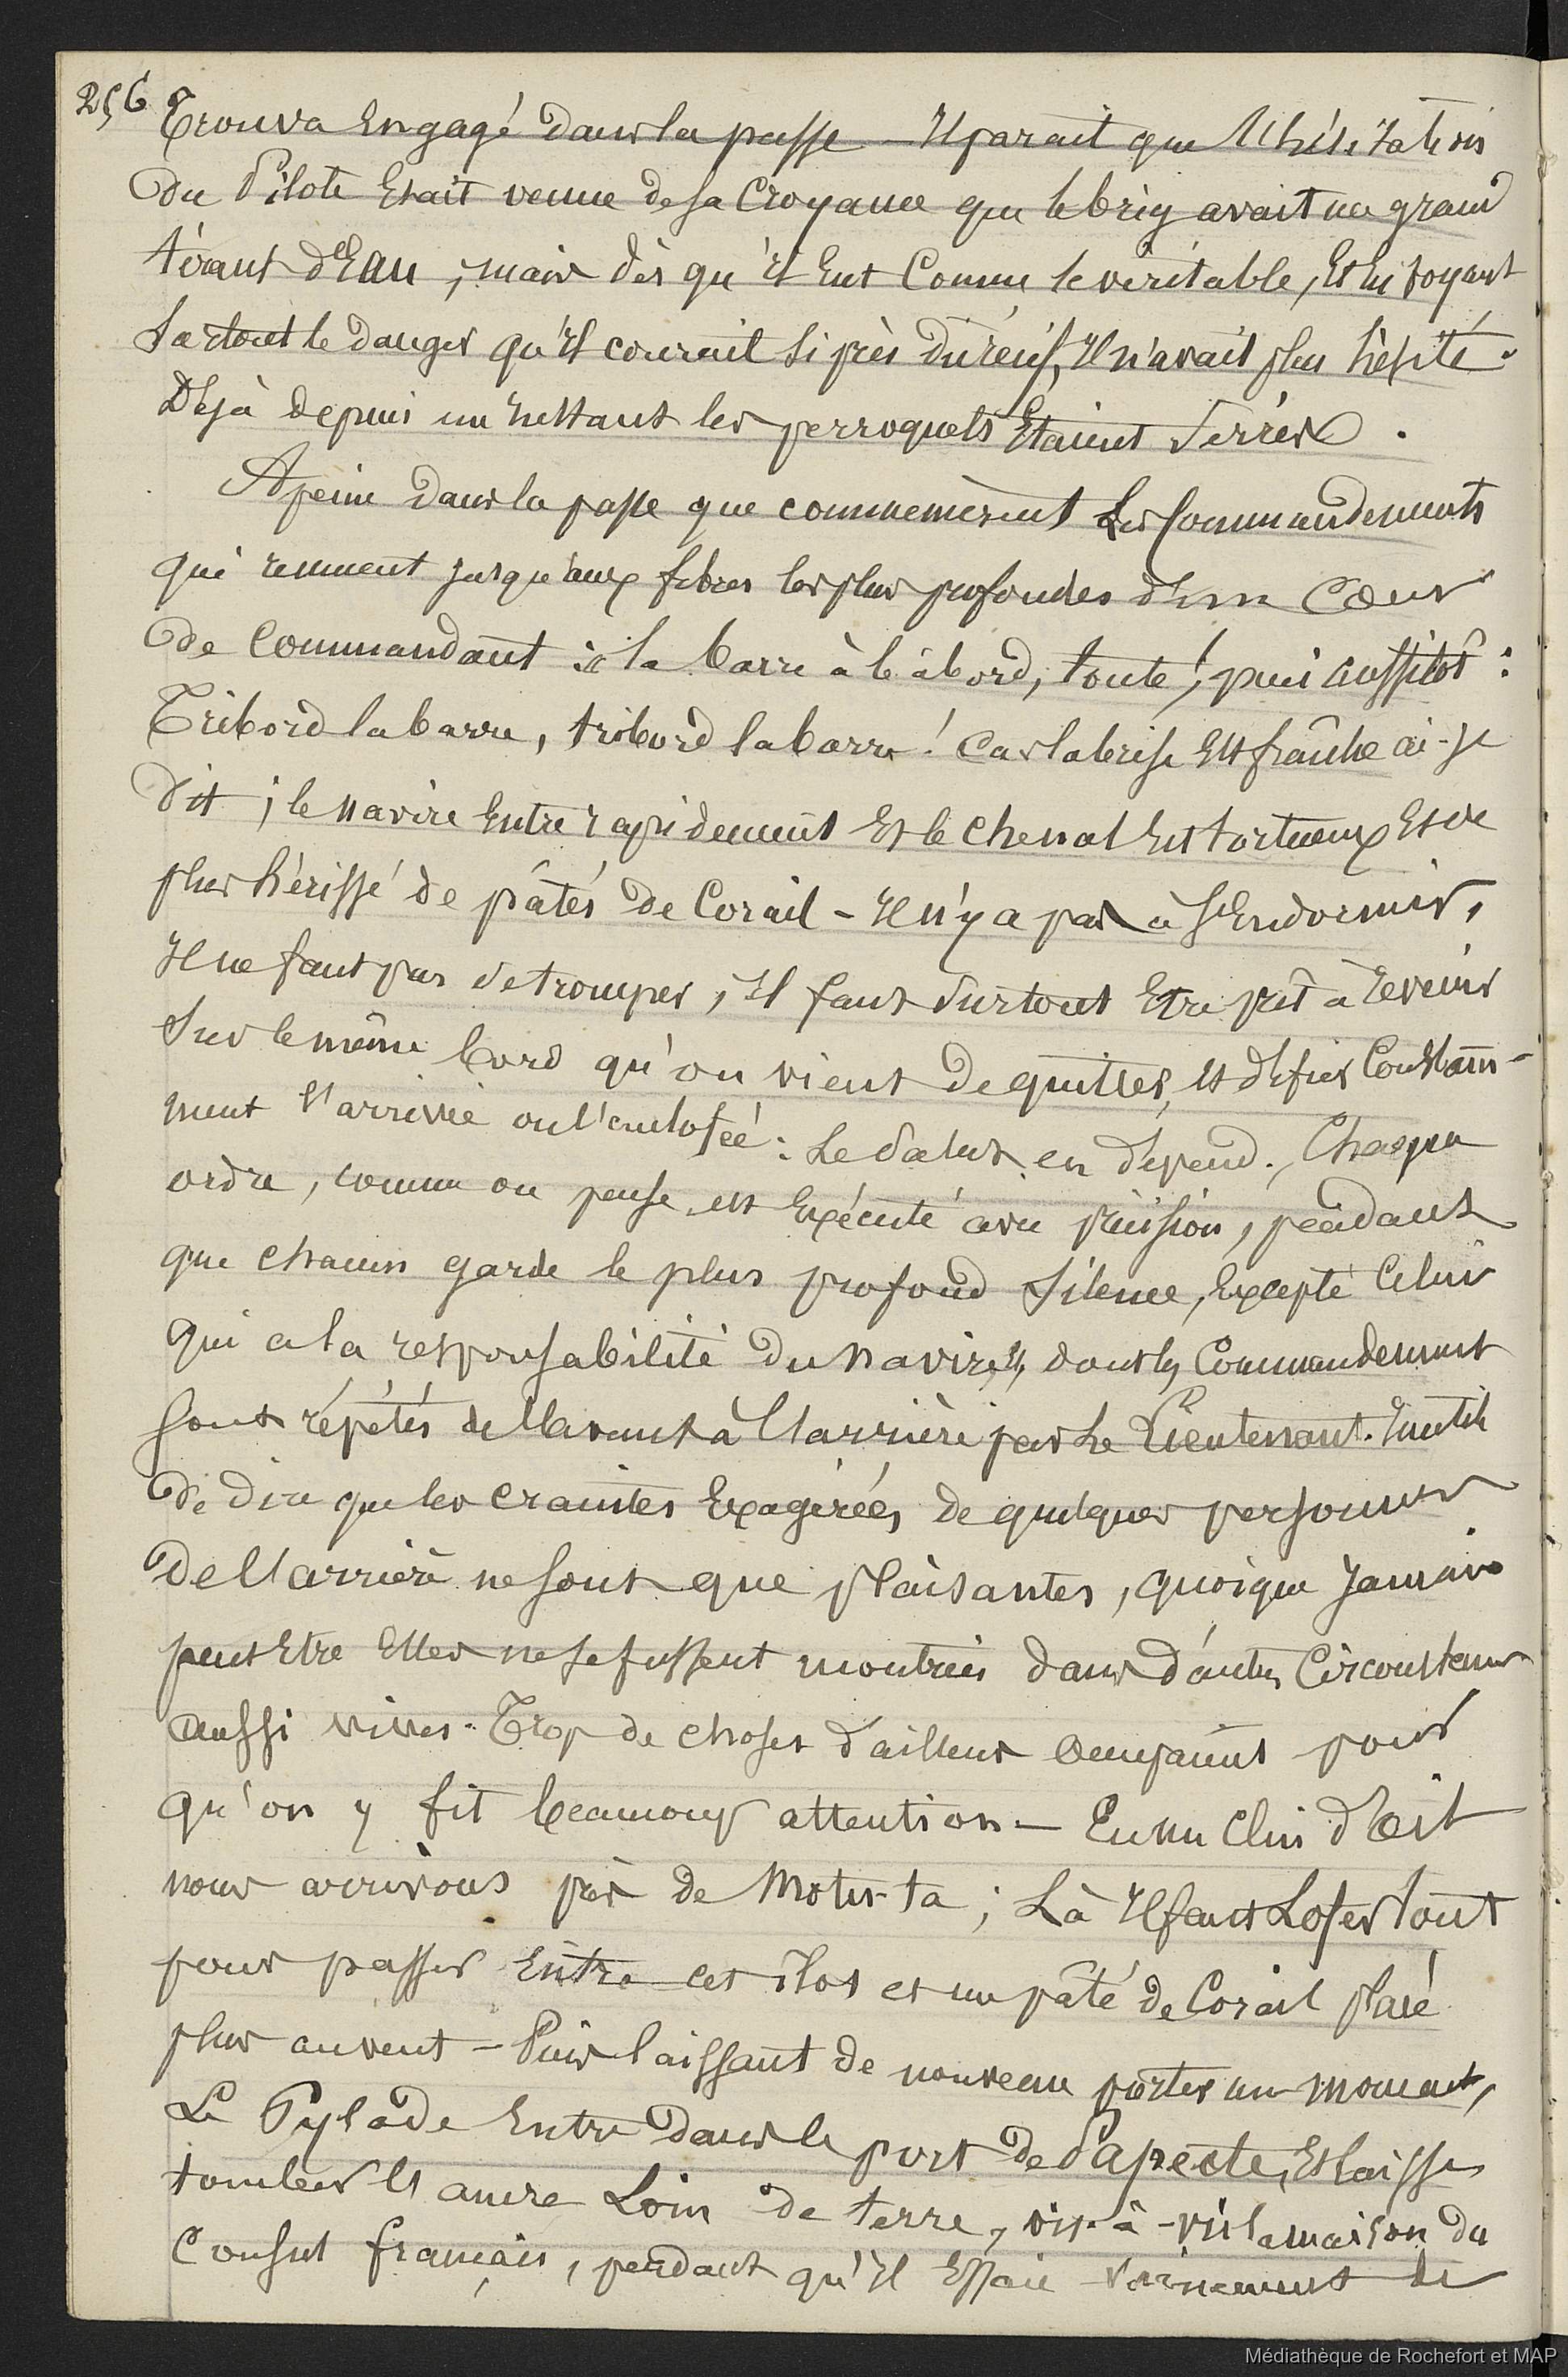 256
Trouva Engagé dans la passe — Il parait que l'hésitation
du Pilote Etait venue de sa Croyance que le brig avait un grand
tirant d'Eau, mais dès qu'il Eut Connu le véritable, Et lui voyant
Surtout le danger qu'il courait si près du récif, Il n'avait plus hésité.
Déjà depuis un Instant les perroquets Etaient Serrés.
A peine dans la passe que commencèrent Les Commandements
qui remuent jusqu'aux fibres les plus profondes d'un Cœur
de Commandant : la barre à bâbord, toute !, puis aussitôt :
Tribord la barre, tribord la barre ! Car la brise Est fraîche ai-je
dit ; le navire Entre rapidement Et le Chenal Est tortueux Et de
plus hérissé de pâtés de Corail - Il n'y a pas à S'Endormir,
Il ne faut pas se tromper, Il faut surtout Etre prêt à revenir
Sur le même bord qu'on vient de quitter, et défier Constam-
ment l'arrivée ou l'aulofée : Le Salut en dépend. Chaque
ordre, comme on pense, est Exécuté avec précision, pendant
que chacun garde le plus profond Silence, Excepté Celui
qui a la responsabilité du navire, Et dont les Commandement
sont répétés de l'avant à l'arrière par Le Lieutenant. Inutile
de dire que les craintes Exagérées de quelques personnes
de l'arrière ne sont que plaisantes, quoique Jamais
peut Etre Elles ne se fussent montrées dans d'autres Circonstances
aussi vives. Trop de choses d'ailleurs occupaient pour
qu'on y fit beaucoup attention — En un Clin d'œil
nous arrivons près de Motu-ta ; Là Il faut Lofer tout
pour passer Entre cet îlot et un pâté de Corail placé
plus au vent — Puis laissant de nouveau porter un moment,
Le Pylade Entre dans le port de Papeete, Et laisse
tomber l'ancre Loin de terre, vis-à-vis la maison du
Consul français, pendant qu'Il Essaie vainement de
Médiathèque de Rochefort et MAP